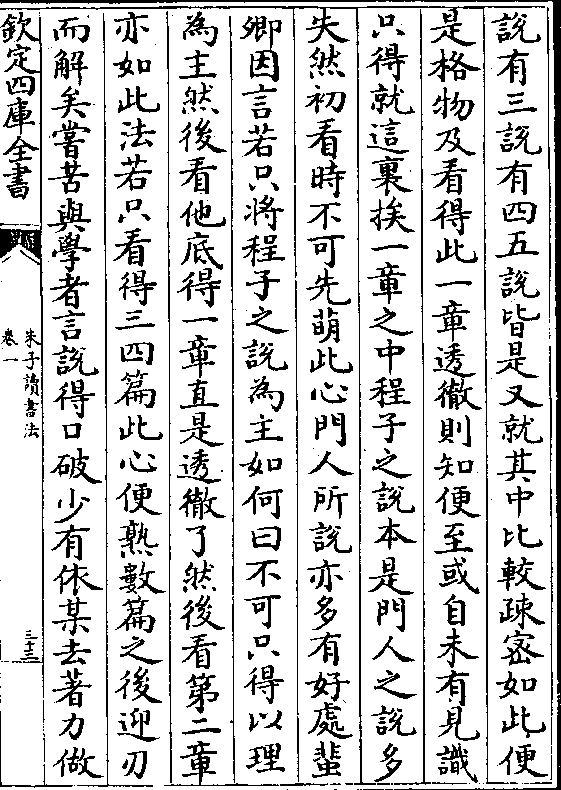 說有三說有四五說皆是又就其中比較疎宻如此便
是格物及看得此一章透徹則知便至或自未有見識
只得就這裏挨一章之中程子之說本是門人之說多
失然初看時不可先萌此心門人所說亦多有好處蜚
卿因言若只將程子之說為主如何曰不可只得以理
為主然後看他底得一章直是透徹了然後看第二章
亦如此法若只看得三四篇此心便熟數篇之後迎刃
而解矣嘗苦與學者言說得口破少有依某去著力做
欽定四庫全書
朱子讀書法
卷一
三十三